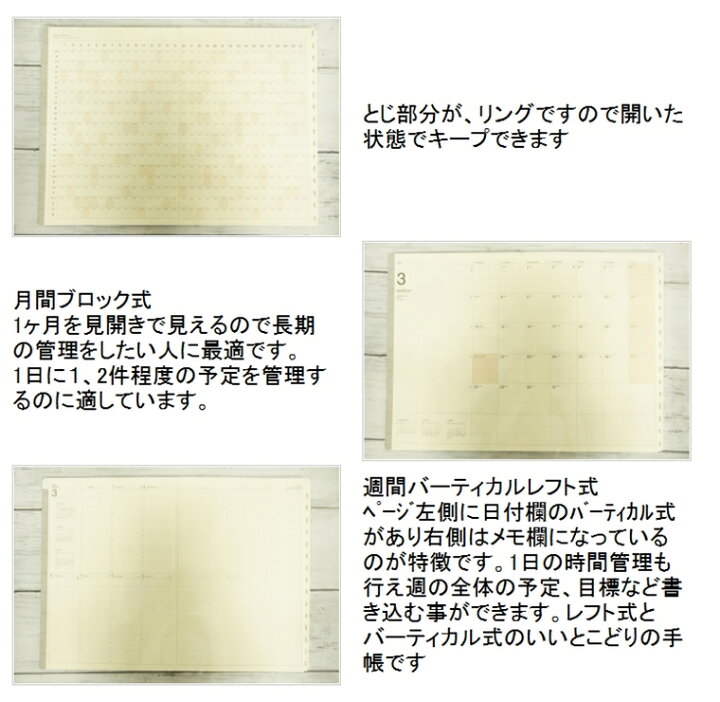 とじ部分が、リングですので開いた
状態でキープできます
月間ブロック式
1ヶ月を見開きで見えるので長期
の管理をしたい人に最適です。
1日に1、2件程度の予定を管理す
るのに適しています。
3
MARCH
3
週間バーティカルレフト式
ﾍﾟｰｼﾞ左側に日付欄のﾊﾞｰﾃｨｶﾙ式
があり右側はメモ欄になっている
のが特徴です。1日の時間管理も
行え週の全体の予定、目標など書
き込む事ができます。レフト式と
バーティカル式のいいとこどりの手
帳です